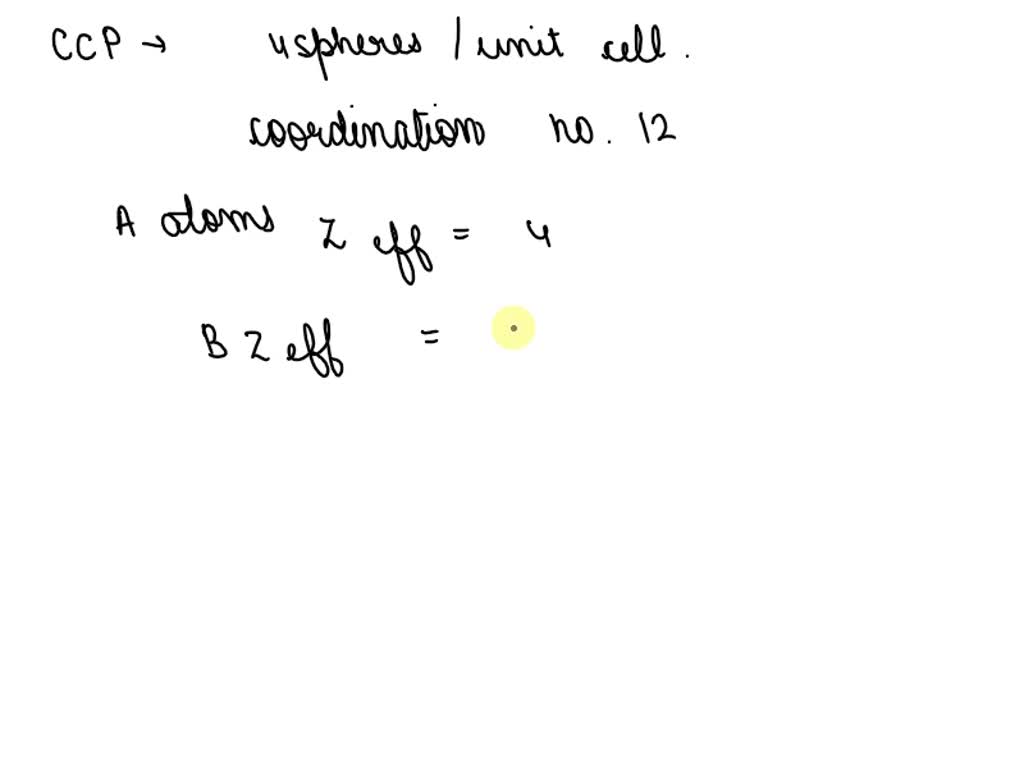 CCP → 4spheres / unit cell.
coordination no. 12
A atoms Z eff = 4
B Z eff =